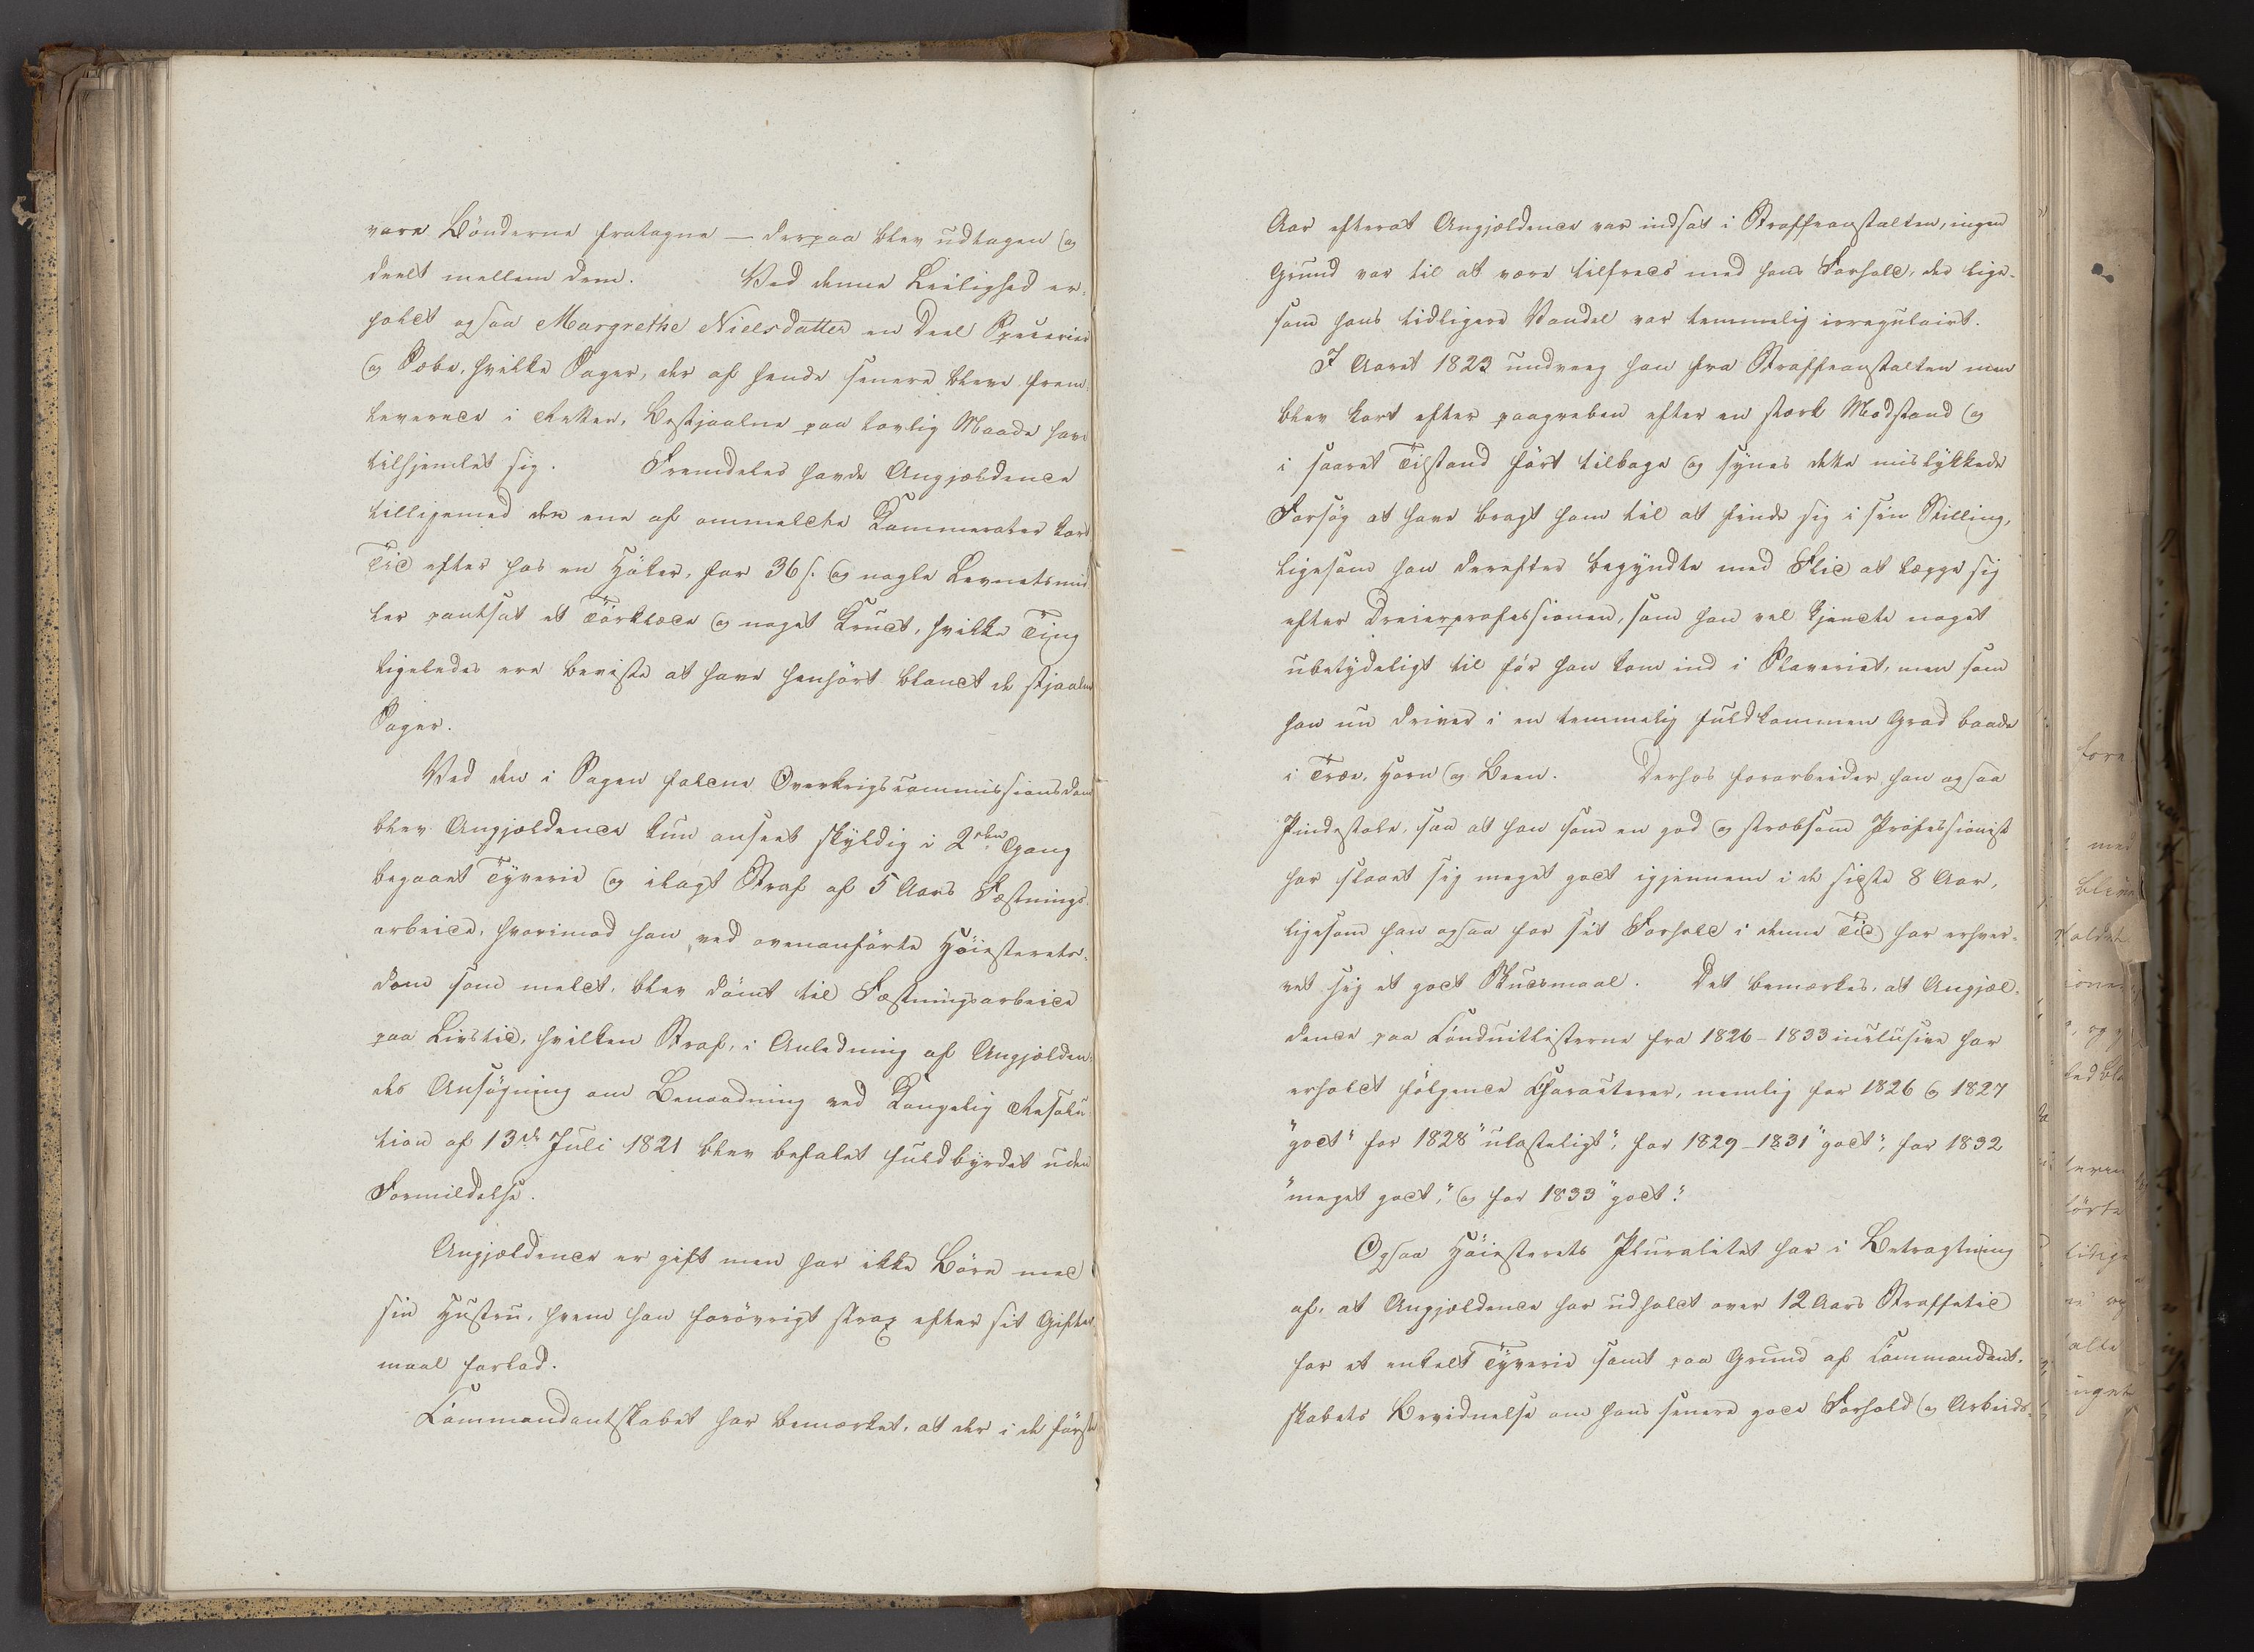 vare Bönderne fratagne — derpaa blev udtagen og
deelt mellem dem. Ved denne Leilighed er-
holdt ogsaa Margrethe Nielsdatter en Deel Specerier
og Sæbe, hvilke Sager, der af hende senere bleve frem-
leverede i Retten, Bestjaalne paa lovlig Maade have
tilhjemlet sig. Fremdeles havde Angjældende
tilligemed den ene af ommeldte Kammerater kort
Tid efter hos en Höker, for 36 s. og nogle Levnetsmid
ler pantsat et Törklæde og noget Krudt, hvilke Ting
ligeledes ere beviste at have henhört blandt de stjaalne
Sager.
Ved den i Sagen faldne Overkrigscommissionsdom
blev Angjældende kun anseet skyldig i 2den Gang
begaaet Tyverie og ilagt Straf af 5 Aars Fæstnings-
arbeide, hvorimod han ved ovenanförte Höiesterets-
dom som meldt, blev dömt til Fæstningsarbeide
paa Livstid, hvilken Straf, i Anledning af Angjælden-
des Ansögning om Benaadning ved Kongelig Resolu-
tion af 13de Juli 1821 blev befalet fuldbyrdet uden
Formildelse.
Angjældende er gift men har ikke Börn med
sin Hustru, hvem han forövrigt strax efter sit Gifter-
maal forlod.
Commandantskabet har bemærket, at der i de förste
Aar efterat Angjældende var indsat i Straffeanstalten, ingen
Grund var til at være tilfreds med hans Forhold, der lige-
som hans tidligere Vandel var temmelig irregulairt.
I Aaret 1823 undveeg han fra Straffeanstalten men
blev kort efter paagreben efter en stærk Modstand og
i saaret Tilstand fört tilbage og synes dette mislykkede
Forsög at have bragt ham til at finde sig i sin Stilling,
ligesom han derefter begyndte med Flid at lægge sig
efter Dreierprofessionen, som han vel kjendte noget
ubetydeligt til för han kom ind i Slaveriet, men som
han nu driver i en temmelig fuldkommen Grad baade
i Træe, Horn og Been. Derhos forarbeider han ogsaa
Pindestole, saa at han som en god og stræbsom Professionist
har slaaet sig meget godt igjennem i de sidste 8 Aar,
ligesom han ogsaa for sit Forhold i denne Tid har erhver-
vet sig et godt Skudsmaal. Det bemærkes, at Angjæl-
dende paa Conduitlisterne fra 1826-1833 inclusive har
erholdt fölgende Characterer, nemlig for 1826 og 1827
"godt" for 1828 "ulasteligt", for 1829-1831 "godt", for 1832
"meget godt", og for 1833 "godt".
Ogsaa Höiesterets Pluralitet har i Betragtning
af, at Angjældende har udholdt over 12 Aars Straffetid
for et enkelt Tyverie samt paa Grund af Commandant-
skabets Bevidnelse om hans senere gode Forhold og Arbeids-